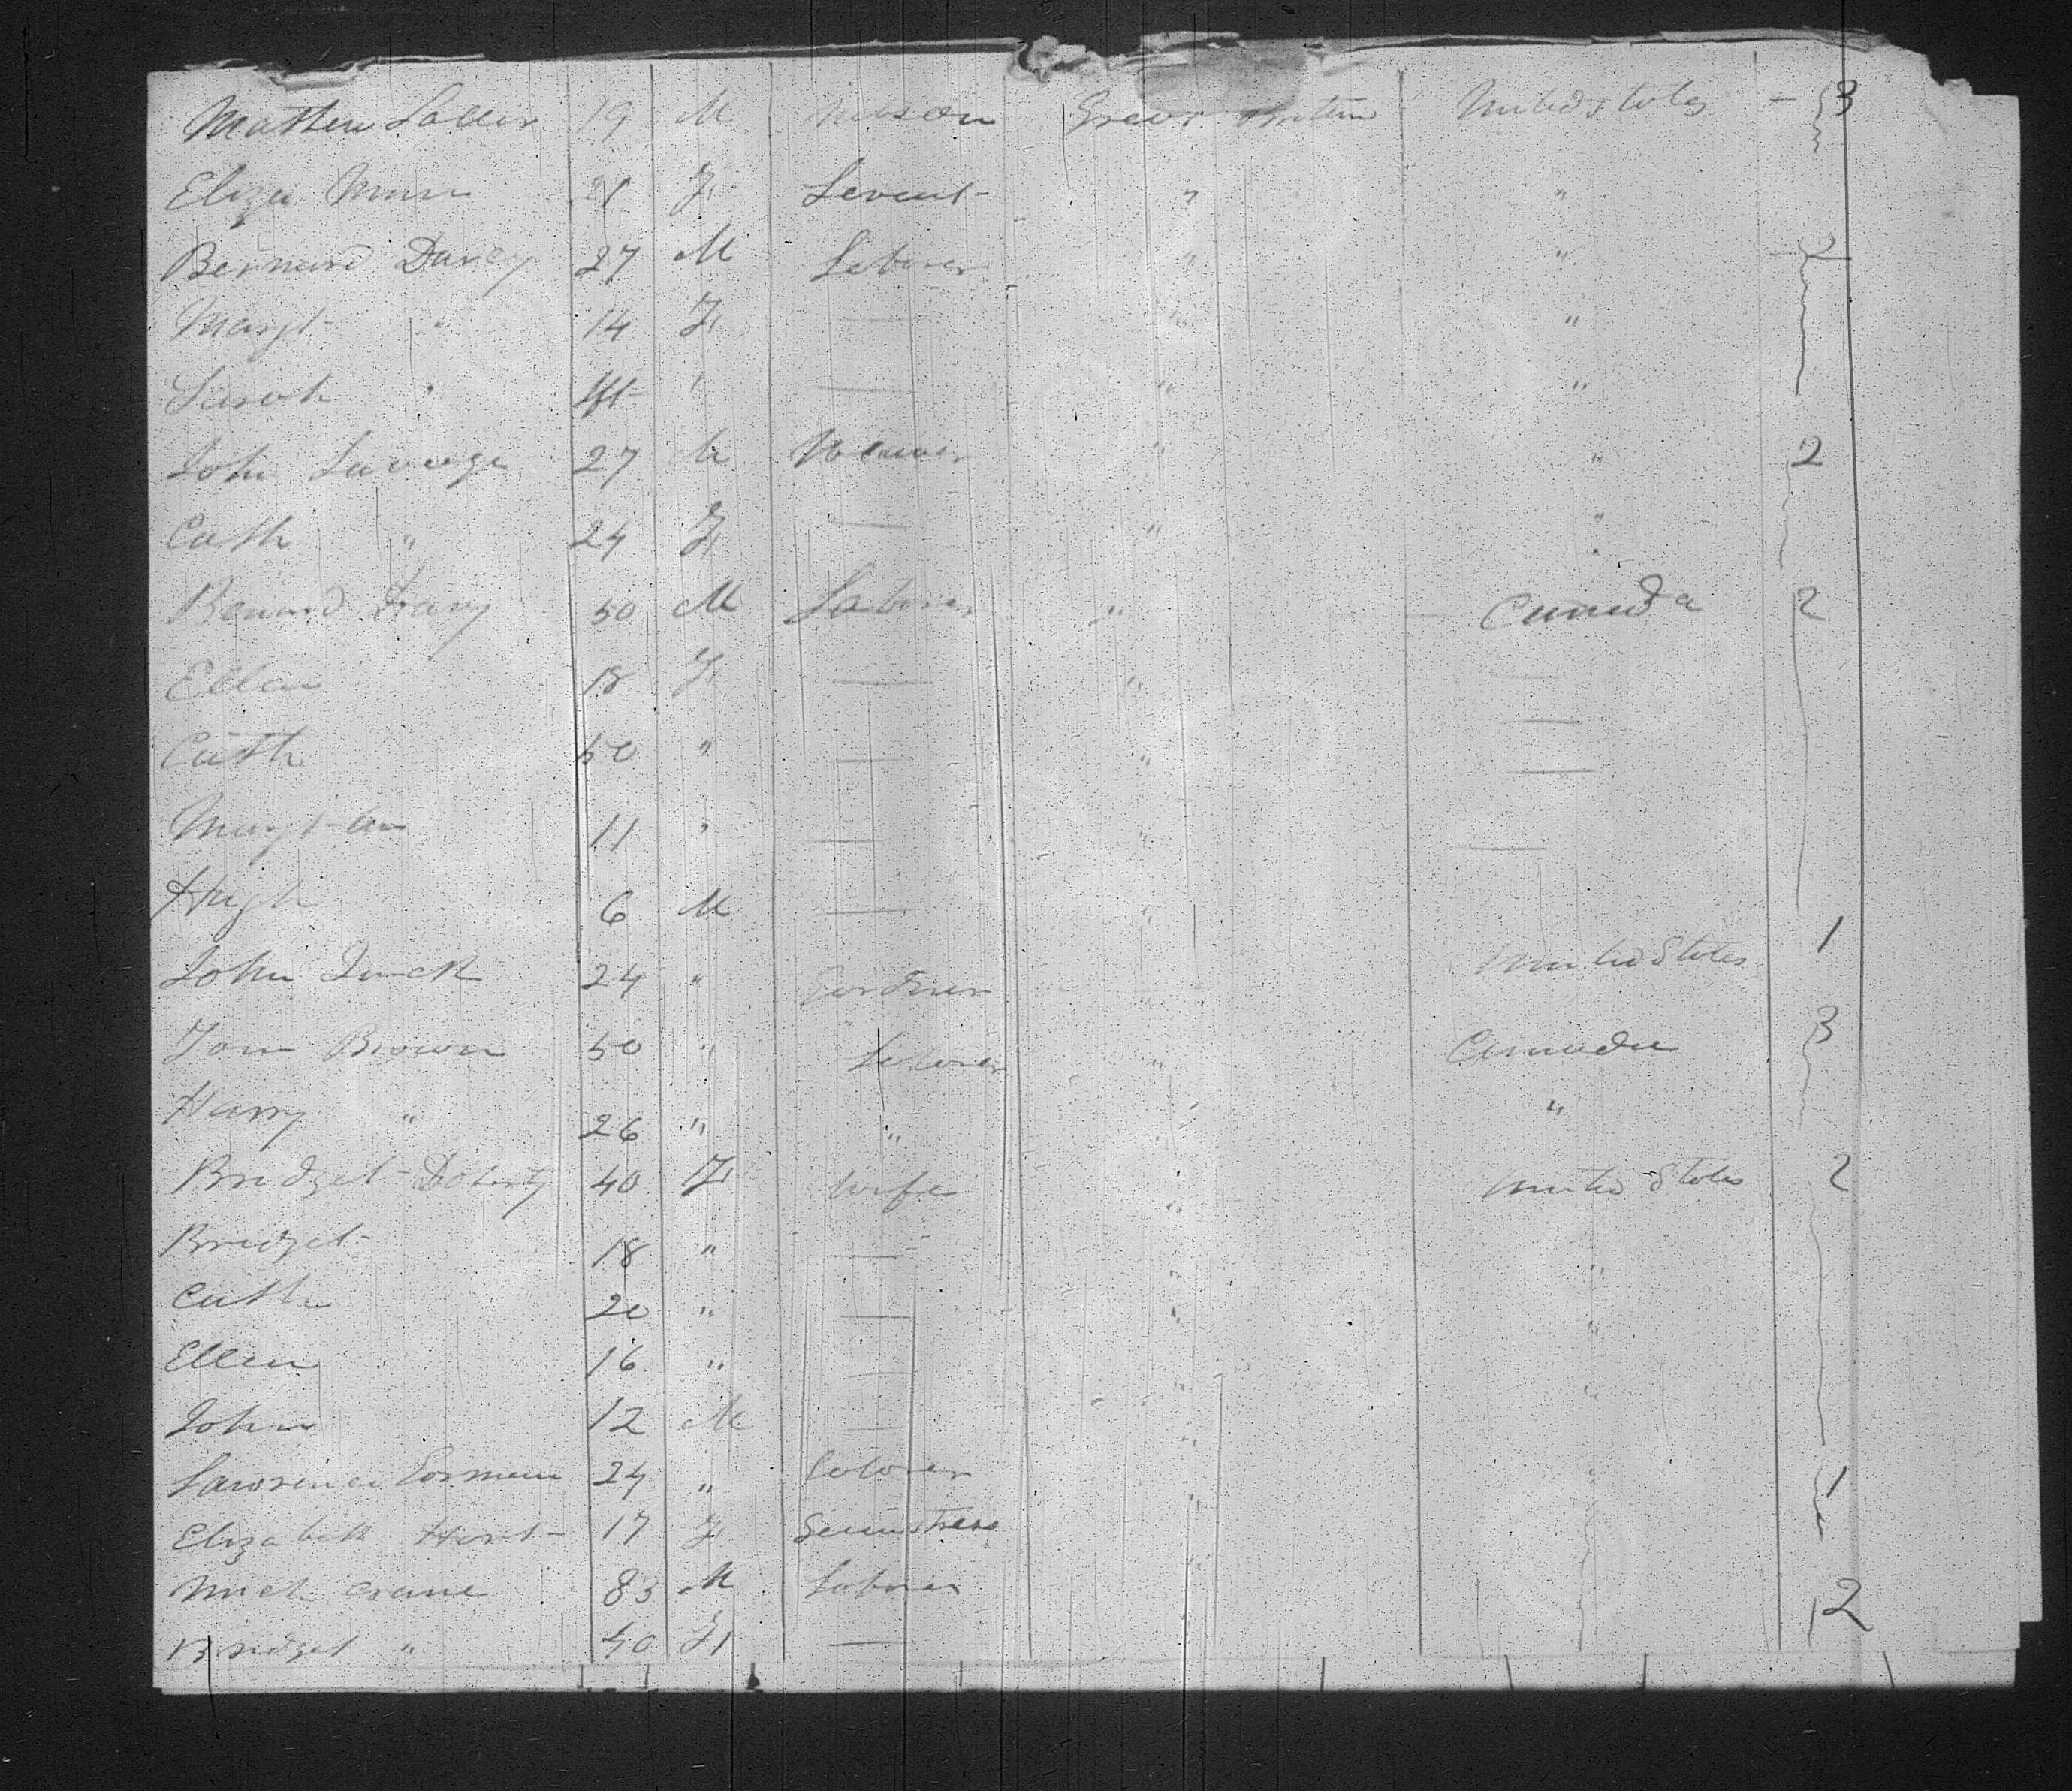 Mathew 19 M Mason Great Britain United States - 3
Eliza 21 F Servant - " "
Bernard Darcy 27 M Laborer " " 2
Margt " 14 F — " "
Sarah " — " "
John Savage 27 M Weaver " " 2
Cath " 24 F — " "
Bernard 50 M Laborer " Canada 2
Ellen 18 F — " —
Cath 50 " — " —
Margt Ann 11 " — " —
Hugh 6 M — "
John 24 " Gardner " United States 1
Tom Brown 50 " Laborer " Canada 3
Harry " 26 " " " "
Bridget Doherty 40 F Wife " United States 2
Bridget 18 " — " "
Cath 20 " — " "
Ellen 16 " — " "
John 12 M — "
Lawrence 24 " Laborer " " 1
Elizabeth 17 F Seamstress
Mich Crane M Laborer 2
Bridget " 40 F —